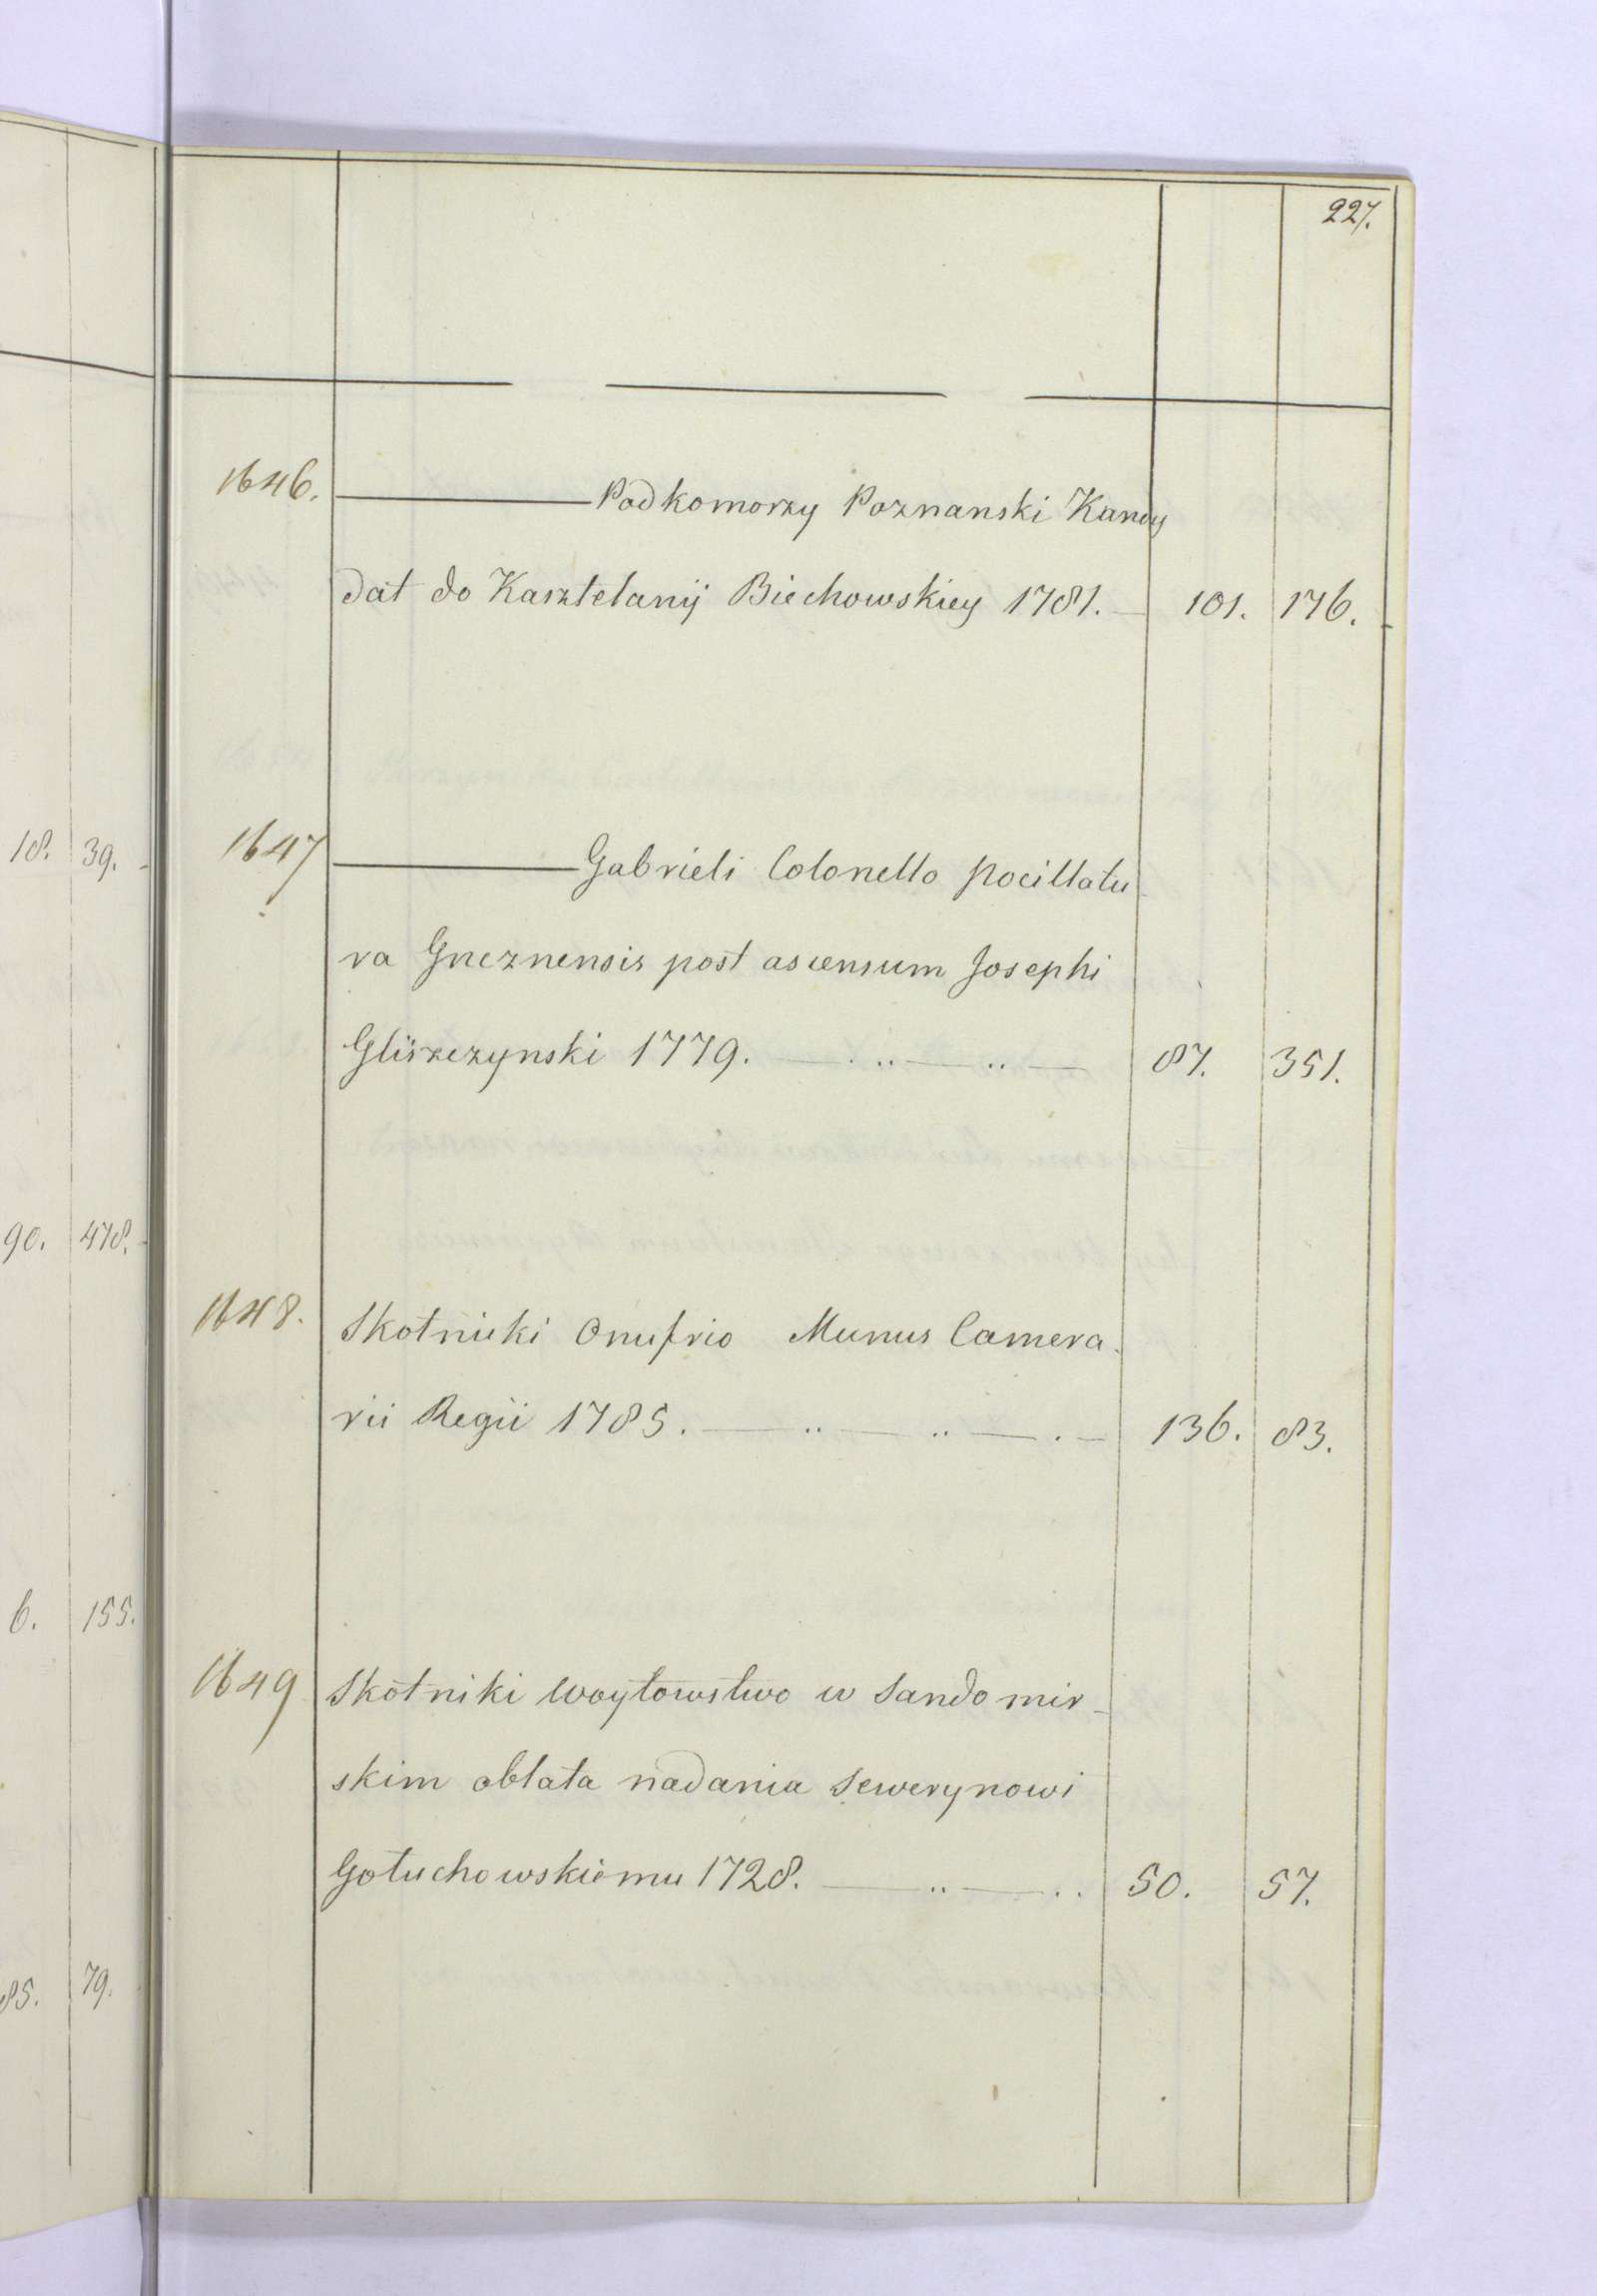 227.
1646. ——— Podkomorzy Poznanski Kandy
dat do Kasztelanij Biechowskiey 1781. — 101. 176.
1647 ——— Gabrieli Colonello pocillatu
ra Gneznensis post ascensum Josephi
Gliszczynski 1779. — . .. — .. — 87. 351.
1648. Skotnicki Onufrio Munus Camera
rii Regii 1785. — .. — .. — . — 136. 83.
1649 Skotniki Woytowstwo w Sandomir-
skim oblata nadania Sewerynowi
Gołuchowskiemu 1728. — .. — .. 50. 57.
18. 39. -
90. 478. -
6. 155.
85. 79.